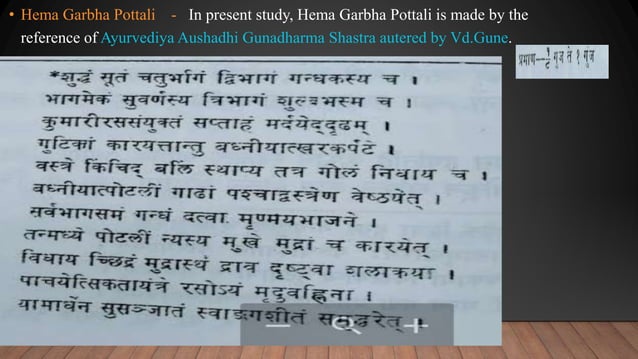 • Hema Garbha Pottali - In present study, Hema Garbha Pottali is made by the
reference of Ayurvediya Aushadhi Gunadharma Shastra autered by Vd.Gune.
प्रमाण—१/२ गुंज ते १ गुंज
*शुद्धं सूतं चतुर्भागं द्विभागं गन्धकस्य च ।
भागमेकं सुवर्णस्य त्रिभागं शुल्बभस्म च ।
कुमारीरससंयुक्तं सप्ताहं मर्दयेद्दृढम् ।
गुटिकां कारयेत्तान्तु बध्नीयात्खरकर्पटे ।
वस्त्रे किंचिद् बलिं स्थाप्य तत्र गोलं निधाय च ।
बध्नीयात्पोटलीं गाढां पश्चाद्वस्त्रेण वेष्टयेत् ।
सर्वभागसमं गन्धं दत्वा मृण्मयभाजने ।
तन्मध्ये पोटलीं न्यस्य मुखे मुद्रां च कारयेत् ।
विधाय च्छिद्रं मुद्रास्थं द्राव दृष्ट्वा शलाकया ।
पाचयेत्सिकतायंत्रे रसोऽयं मृदुवह्निना ।
यामार्धेन सुसञ्जातं स्वाङ्गशीतं समुद्धरेत् ।